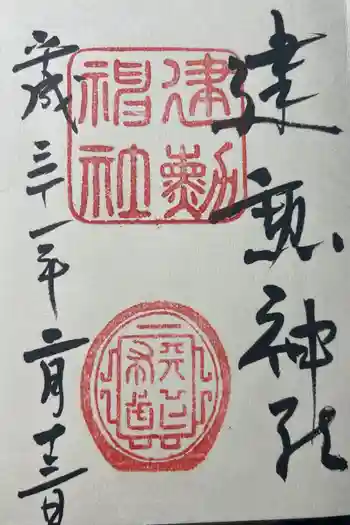 建勲神社
建勲
神社
天下
布武
平成三十一年二月十三日